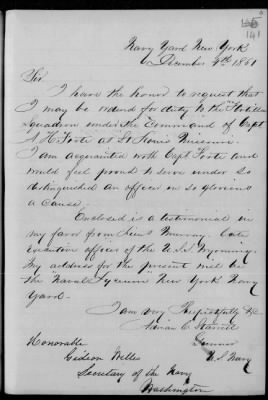 141
Navy Yard New York
December 4th 1861
Sir
I have the honor to request that
I may be ordered for duty to the Flotilla
Squadron under the Command of Capt
A H Foote at St Louis Missouri.
I am acquainted with Capt Foote and
would feel proud to serve under so
distinguished an officer in so glorious
a cause.
Enclosed is a testimonial in
my favor from Lieut Murray. late
executive officer of the U.S.S. Wyoming.
My address for the present will be
the Naval Lyceum New York Navy
Yard.
I am Very Respectfully &c
C
Gunner
Honorable U.S. Navy
Gideon Welles
Secretary of the Navy
Washington